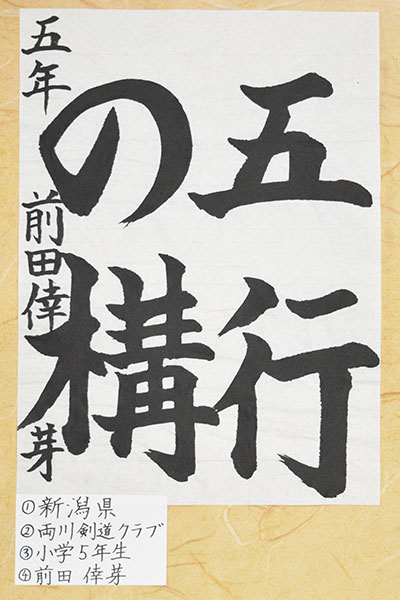 五行
の構
五年 前田倖芽
①新潟県
②両川剣道クラブ
③小学5年生
④前田 倖芽